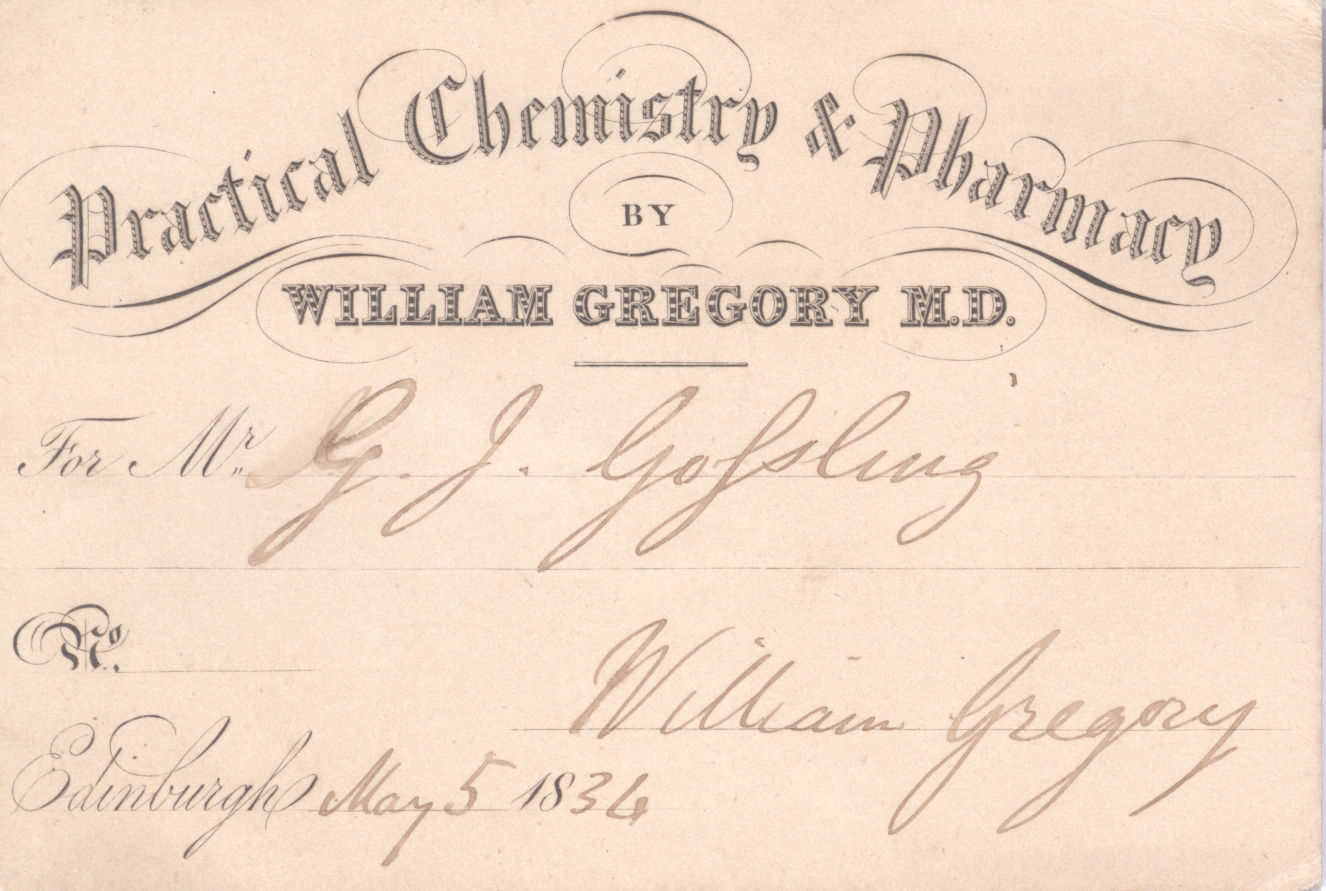 Practical Chemistry & Pharmacy
BY
WILLIAM GREGORY M.D.
For Mr. G. J. Goſsling
No.
William Gregory
Edinburgh May 5 1834